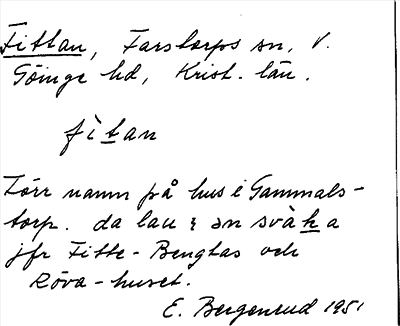 Fittan, Farstorps sn, V.
Göinge hd, Krist. län.
fìtan
Förr namn på hus i Gammals-
torp. da lau ɛ ən svàka
jfr Fitte-Bengtas och
Röva-huset.
E. Bergenrud 1951